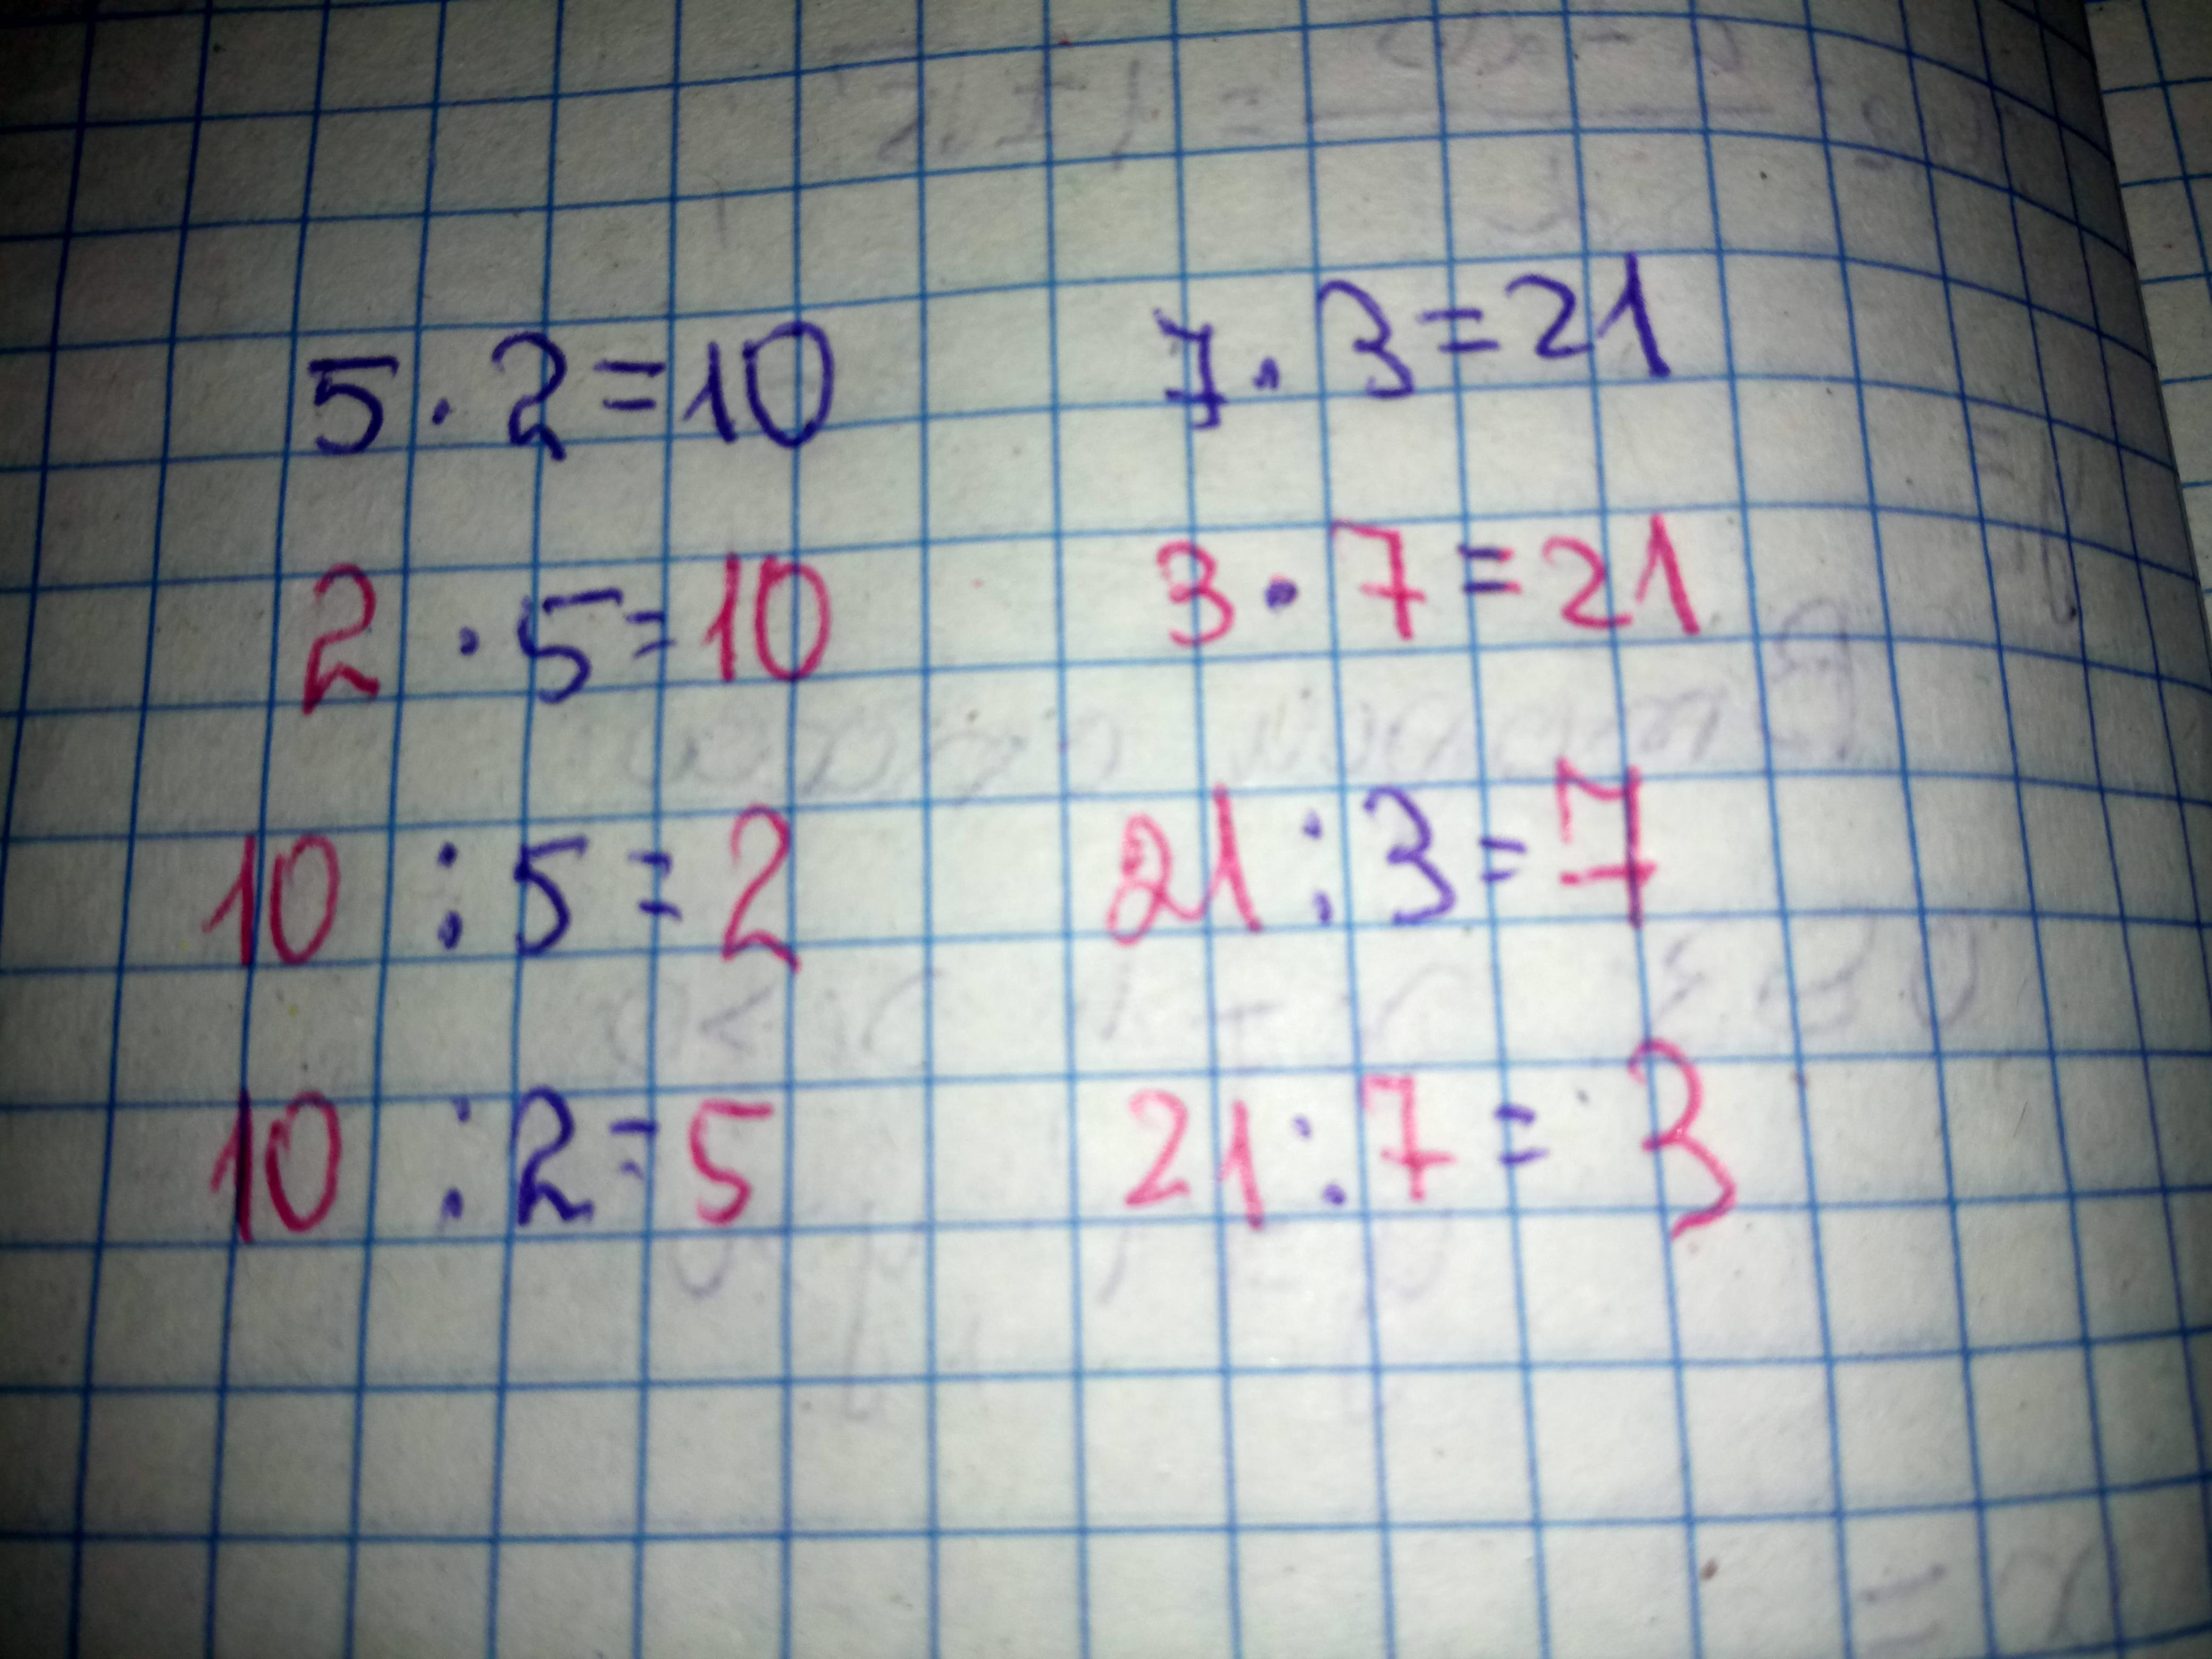 5 · 2 = 10
2 · 5 = 10
10 : 5 = 2
10 : 2 = 5
7 · 3 = 21
3 · 7 = 21
21 : 3 = 7
21 : 7 = 3